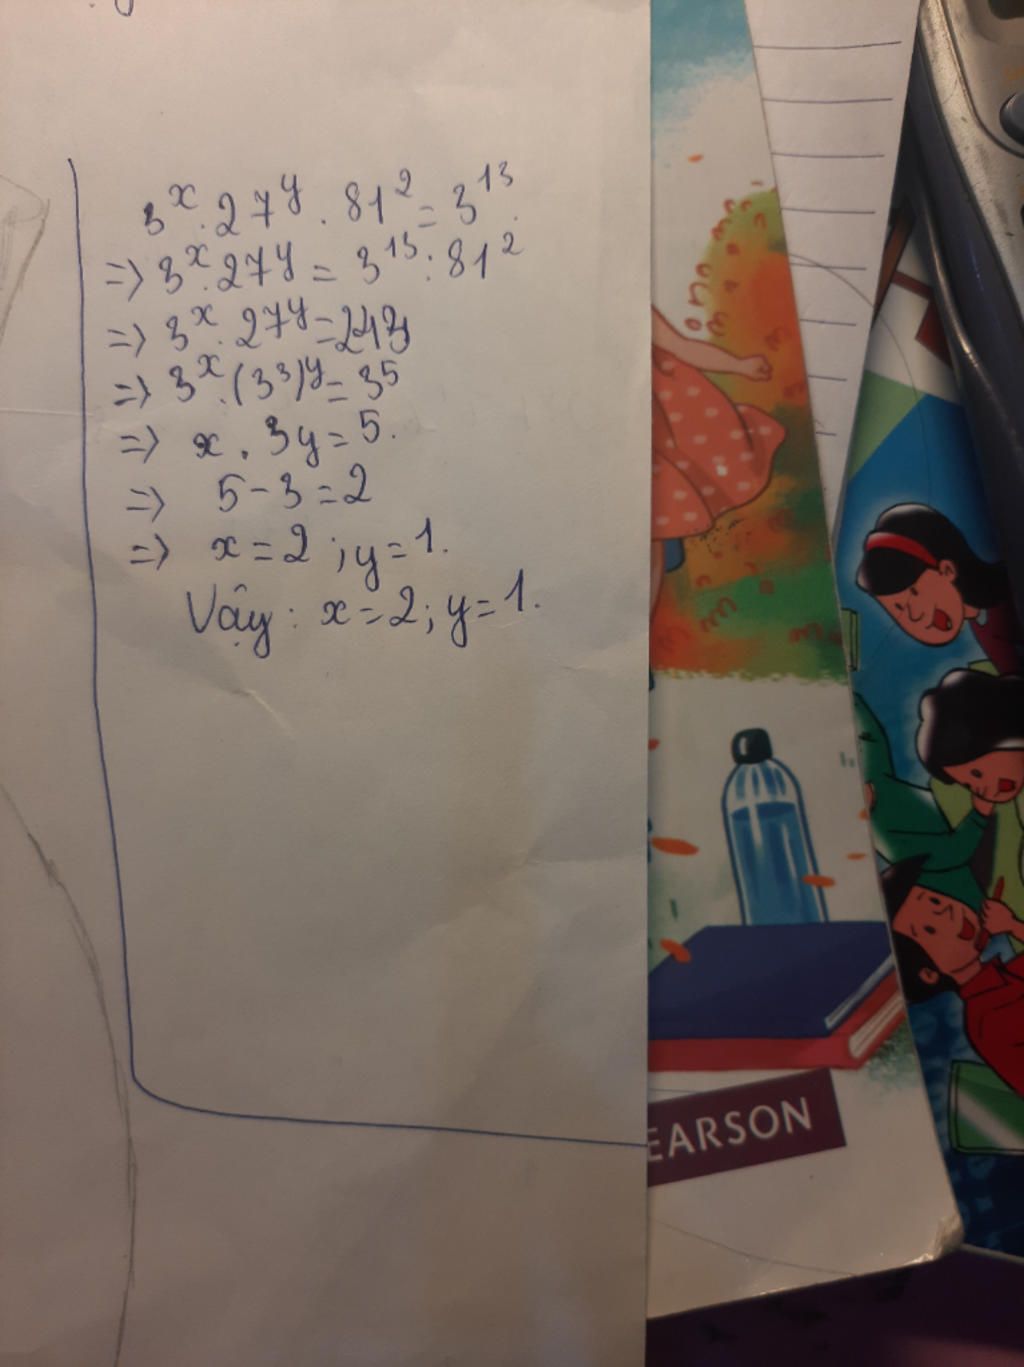 3^x . 27^y . 81^2 = 3^13.
=> 3^x . 27^y = 3^13 : 81^2
=> 3^x . 27^y = 243
=> 3^x . (3^3)^y = 3^5
=> x . 3y = 5.
=> 5 - 3 = 2
=> x = 2 ; y = 1.
Vậy : x = 2 ; y = 1.
EARSON